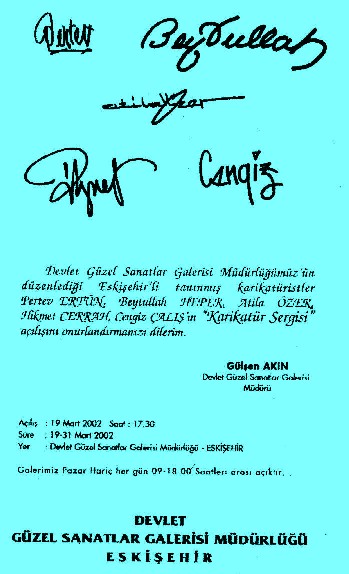 Pertev
Beytullah
Atila Özer
Hikmet
Cengiz
Devlet Güzel Sanatlar Galerisi Müdürlüğümüz'ün
düzenlediği Eskişehir'li tanınmış karikatüristler
Pertev ERTÜN, Beytullah HEPER, Atila ÖZER,
Hikmet CERRAH, Cengiz ÇALIŞ'ın "Karikatür Sergisi"
açılışını onurlandırmanızı dilerim.
Gülşen AKIN
Devlet Güzel Sanatlar Galerisi
Müdürü
Açılış : 19 Mart 2002 Saat : 17.30
Süre : 19-31 Mart 2002
Yer : Devlet Güzel Sanatlar Galerisi Müdürlüğü - ESKİŞEHİR
Galerimiz Pazar Hariç her gün 09-18.00 Saatleri arası açıktır.
DEVLET
GÜZEL SANATLAR GALERİSİ MÜDÜRLÜĞÜ
ESKİŞEHİR